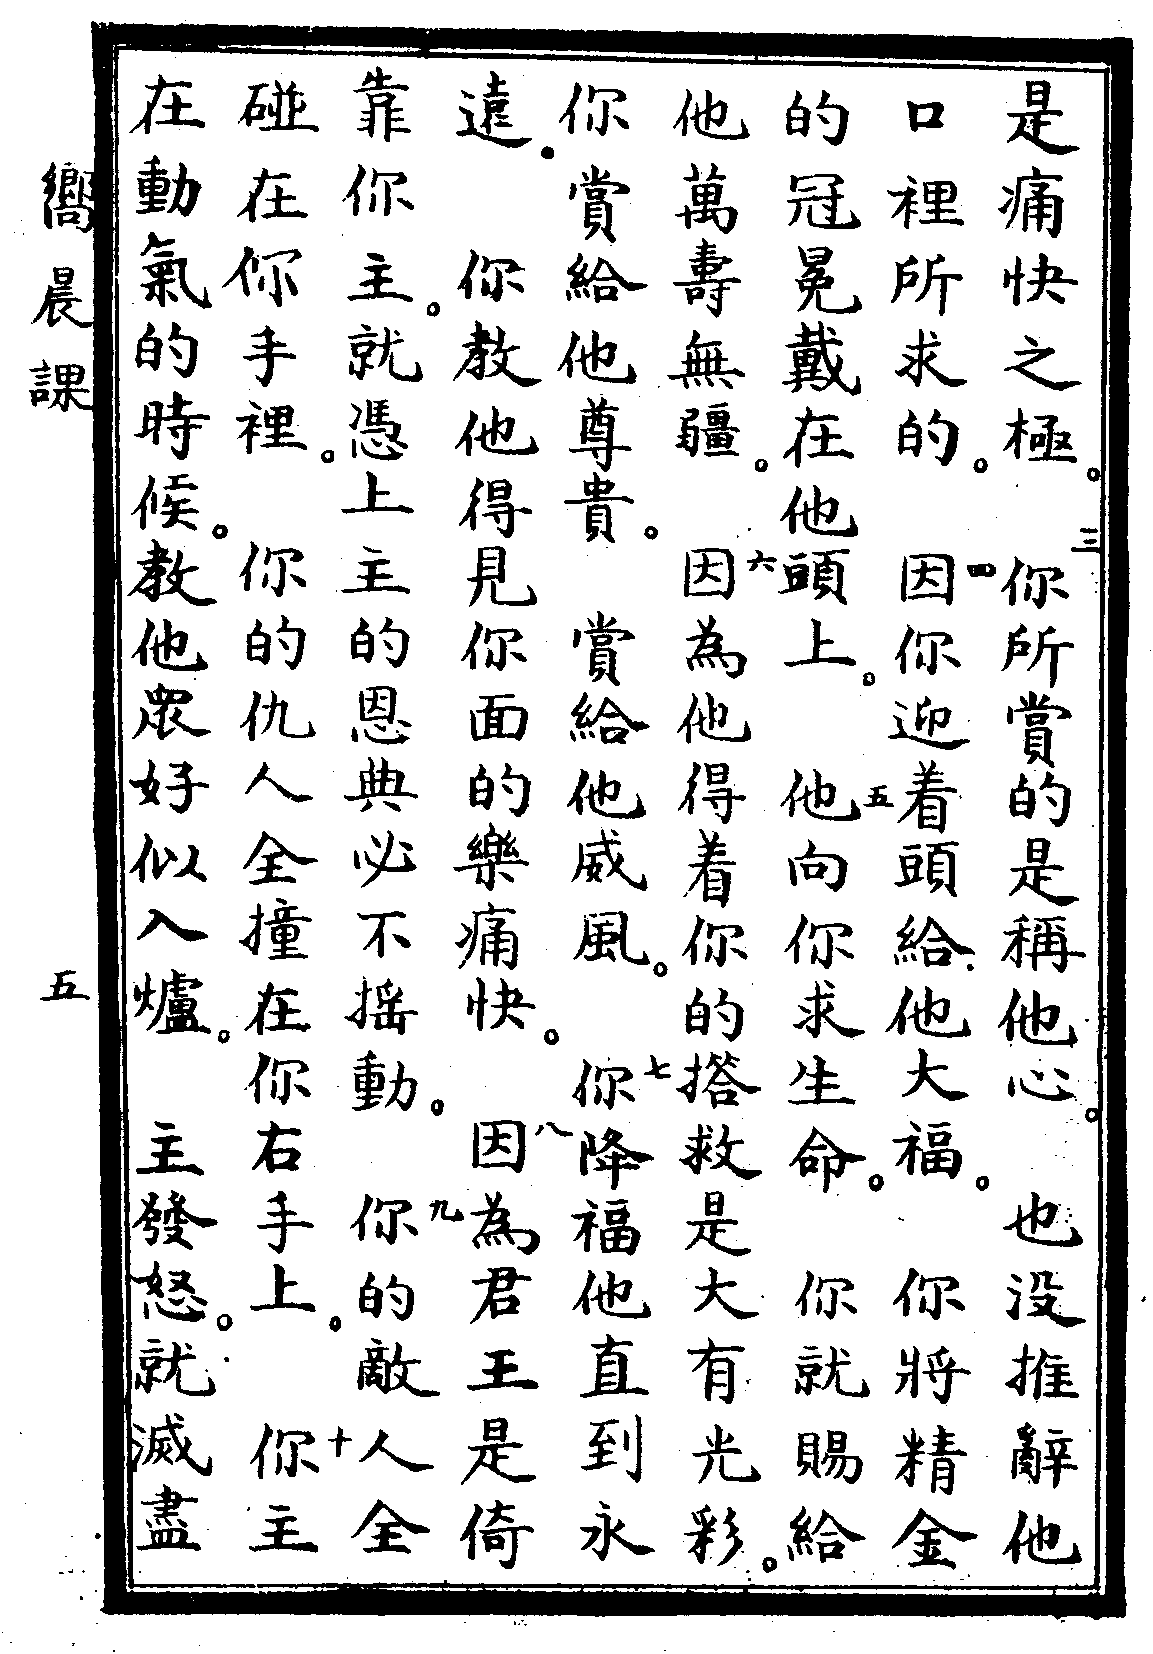 是痛快之極。三你所賞的是稱他心。也没推辭他
口裡所求的。四因你迎着頭給他大福。你將精金
的冠冕戴在他頭上。五他向你求生命。你就賜給
他萬壽無疆。六因為他得着你的搭救是大有光彩。
你賞給他尊貴。賞給他威風。七你降福他直到永
遠.你教他得見你面的樂痛快。八因為君王是倚
靠你主。就憑上主的恩典必不搖動。九你的敵人全
碰在你手裡。你的仇人全撞在你右手上。十你主
在動氣的時候。教他眾好似入爐。主發怒。就滅盡
嚮晨課
五